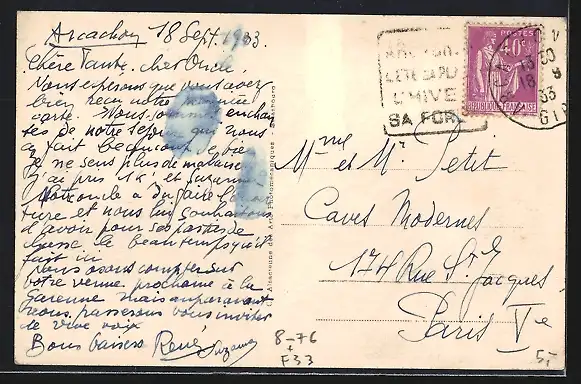 Arcachon 18 Sept. 1933.
Chère Tante, cher Oncle,
Nous espérons que vous avez
bien reçu notre première
carte. Nous sommes enchan-
tés de notre séjour qui nous
a fait beaucoup de bien
je ne sens plus de malaise
j'ai pris 1K et Suzanne
a dû faire
et nous lui souhaitons
d'avoir pour ses parties de
chasse le beau temps qu'il
fait ici
Nous osons compter sur
votre venue prochaine à la
Garenne mais auparavant
nous passerons vous inviter
de vive voix
Bons baisers René
Suzanne
ARCACHON
L'ETE
L'HIVER
SA FORET
POSTES
40c
REPUBLIQUE FRANÇAISE
18 9
33
GIR
Mme et Mr Petit
Caves Modernes
174 Rue St Jacques
Paris Ve
8-76
+
F33
5,-